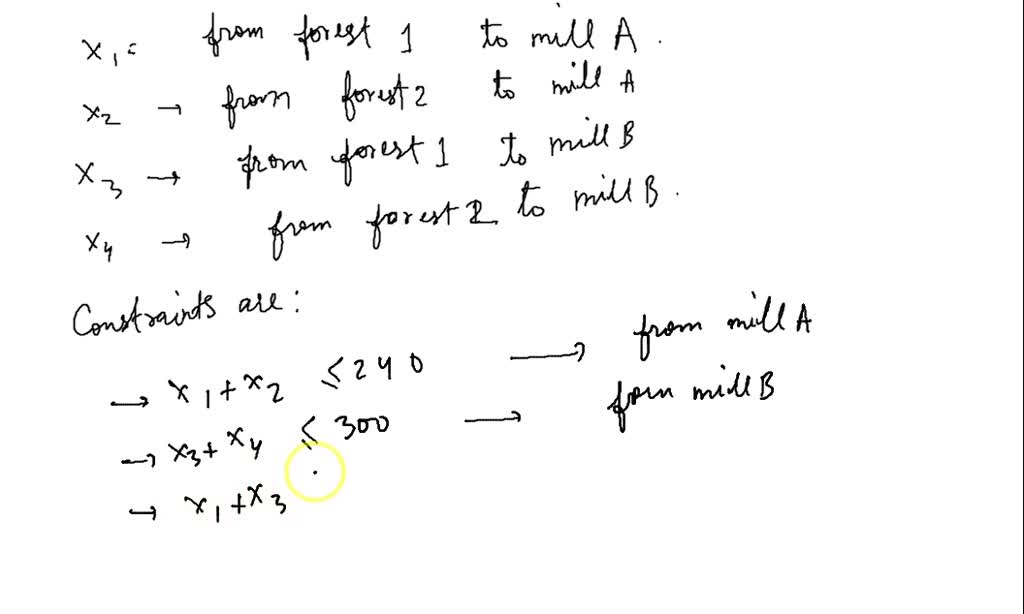 x1 = from forest 1 to mill A.
x2 → from forest 2 to mill A
x3 → from forest 1 to mill B
x4 → from forest 2 to mill B.
Constraints are:
→ x1 + x2 ≤ 240 → from mill A
→ x3 + x4 ≤ 300 → from mill B
→ x1 + x3